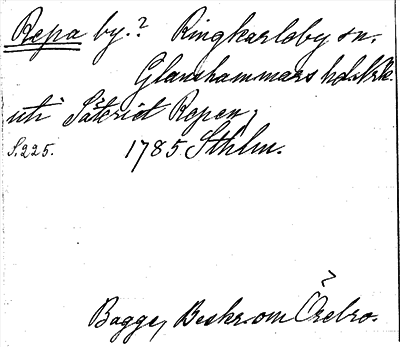 Repa by.? Ringkarleby sn.
Glanshammars hd. Ark
uti Säteriet Repen,
S. 225. 1785 Sthlm.
Bagge, Beskr. om Örebro.